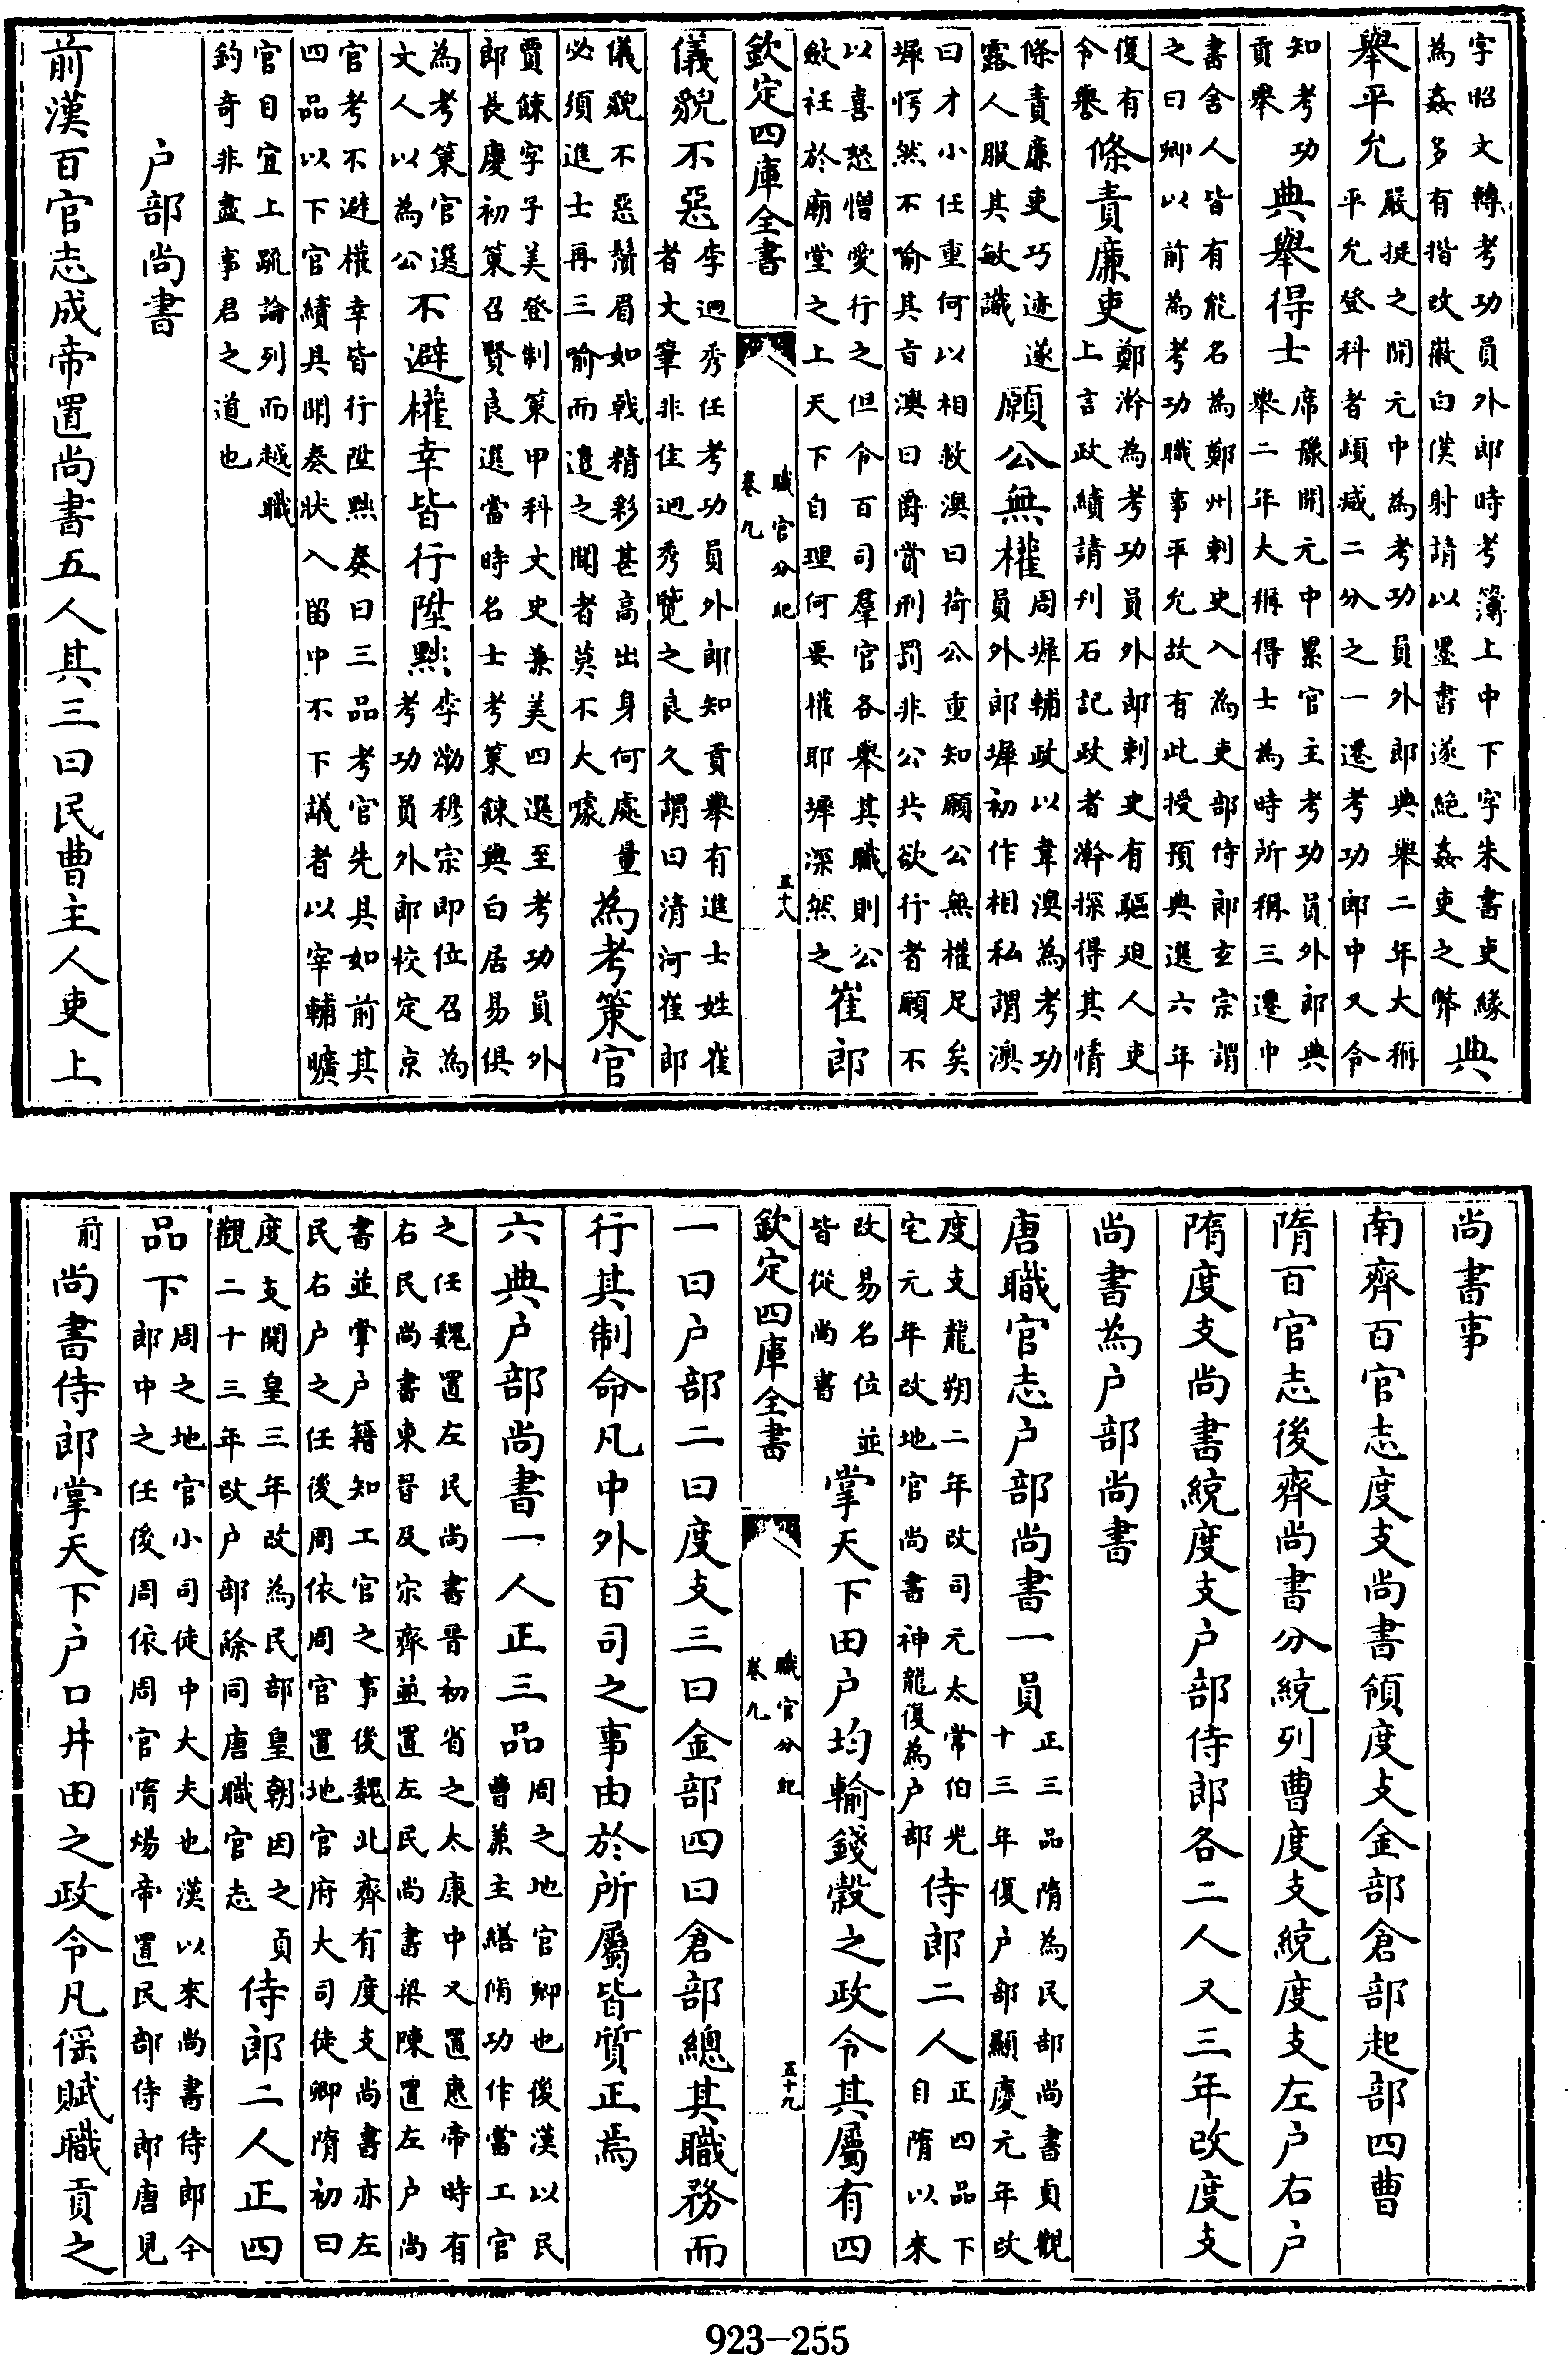 字昭文轉考功員外郎時考簿上中下字朱書吏緣為姦多有揩改徽白僕射請以墨書遂絶姦吏之弊典
舉平允嚴挺之開元中為考功員外郎典舉二年大稱平允登科者頓減二分之一遷考功郎中又令
知考功貢舉典舉得士席豫開元中累官主考功員外郎典舉二年大稱得士為時所稱三遷中
書舍人皆有能名為鄭州刺史入為吏部侍郎玄宗謂之曰卿以前為考功職事平允故有此授預典選六年
復有令譽條責廉吏鄭澣為考功員外郎刺史有驅廹人吏上言政績請刋石記政者澣探得其情
條責廉吏巧迹遂露人服其敏識願公無權周墀輔政以韋澳為考功員外郎墀初作相私謂澳
曰才小任重何以相救澳曰荷公重知願公無權足矣墀愕然不喻其旨澳曰爵賞刑罰非公共欲行者願不
以喜怒憎愛行之但令百司羣官各舉其職則公斂衽於廟堂之上天下自理何要權耶墀深然之崔郎
欽定四庫全書 職官分紀 卷九 五十八
儀貌不惡李迥秀任考功員外郎知貢舉有進士姓崔者文筆非佳迥秀覽之良久謂曰清河崔郎
儀貌不惡鬚眉如戟精彩甚高出身何處量必須進士再三喻而遣之聞者莫不大噱為考策官
賈餗字子美登制策甲科文史兼美四選至考功員外郎長慶初策召賢良選當時名士考策餗與白居易俱
為考策官選文人以為公不避權幸皆行陞黜李渤穆宗即位召為考功員外郎校定京
官考不避權幸皆行陞黜奏曰三品考官先具如前其四品以下官續具聞奏狀入留中不下議者以宰輔曠
官自宜上疏論列而越職釣奇非盡事君之道也
户部尚書
前漢百官志成帝置尚書五人其三曰民曹主人吏上
尚書事
南齊百官志度支尚書領度支金部倉部起部四曹
隋百官志後齊尚書分統列曹度支統度支左户右户
隋度支尚書統度支户部侍郎各二人又三年改度支
尚書為户部尚書
唐職官志户部尚書一員正三品隋為民部尚書貞觀十三年復户部顯慶元年改
度支龍朔二年改司元太常伯光宅元年改地官尚書神龍復為户部侍郎二人正四品下自隋以來
改易名位並皆從尚書掌天下田户均輸錢穀之政令其屬有四
欽定四庫全書 職官分紀 卷九 五十九
一曰户部二曰度支三曰金部四曰倉部總其職務而
行其制命凡中外百司之事由於所屬皆質正焉
六典户部尚書一人正三品周之地官卿也後漢以民曹兼主繕脩功作當工官
之任魏置左民尚書晉初省之太康中又置惠帝時有右民尚書東晉及宋齊並置左民尚書梁陳置左户尚
書並掌户籍知工官之事後魏北齊有度支尚書亦左民右户之任後周依周官置地官府大司徒卿隋初曰
度支開皇三年改為民部皇朝因之貞觀二十三年改户部餘同唐職官志侍郎二人正四
品下周之地官小司徒中大夫也漢以來尚書侍郎今郎中之任後周依周官隋煬帝置民部侍郎唐見
前尚書侍郎掌天下户口井田之政令凡徭賦職貢之
923-255